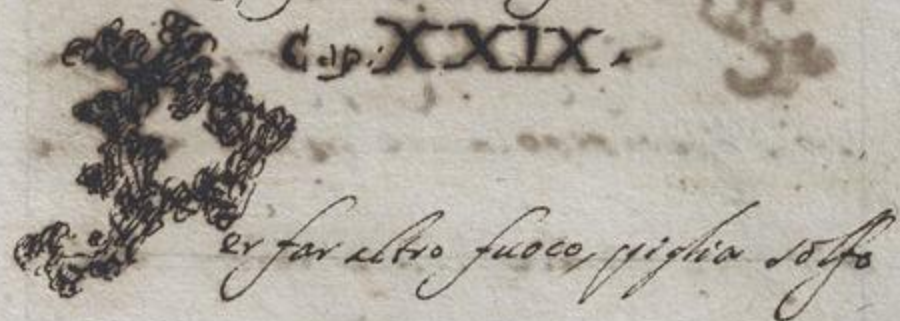 Cap: XXIX.
Per far altro fuoco, piglia solfo